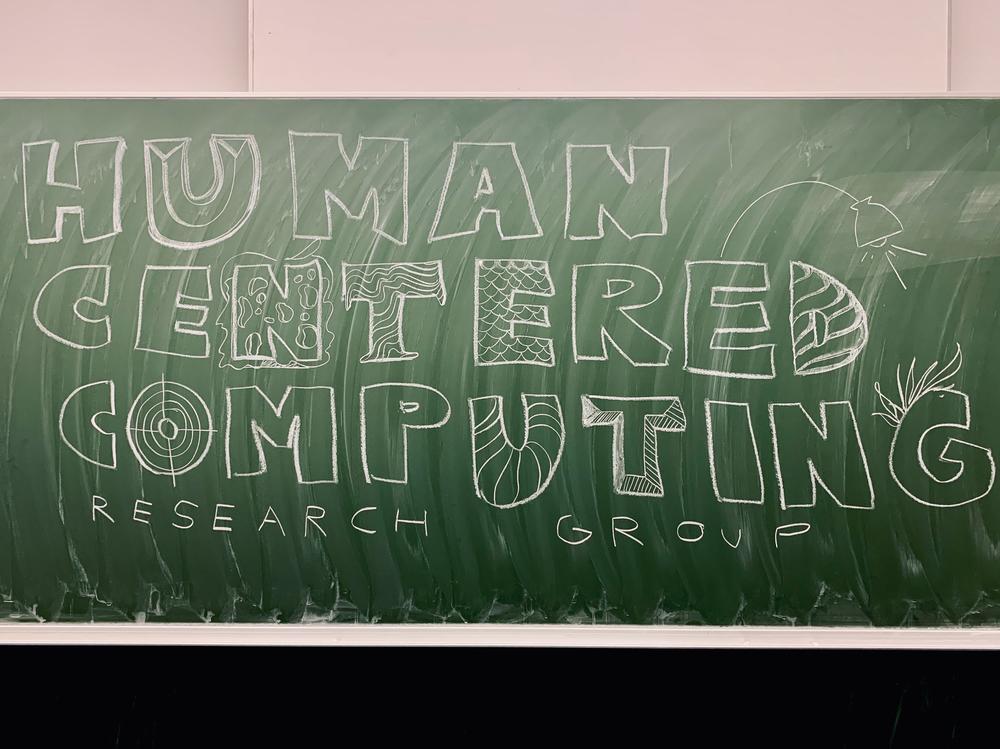 HUMAN
CENTERED
COMPUTING
RESEARCH GROUP